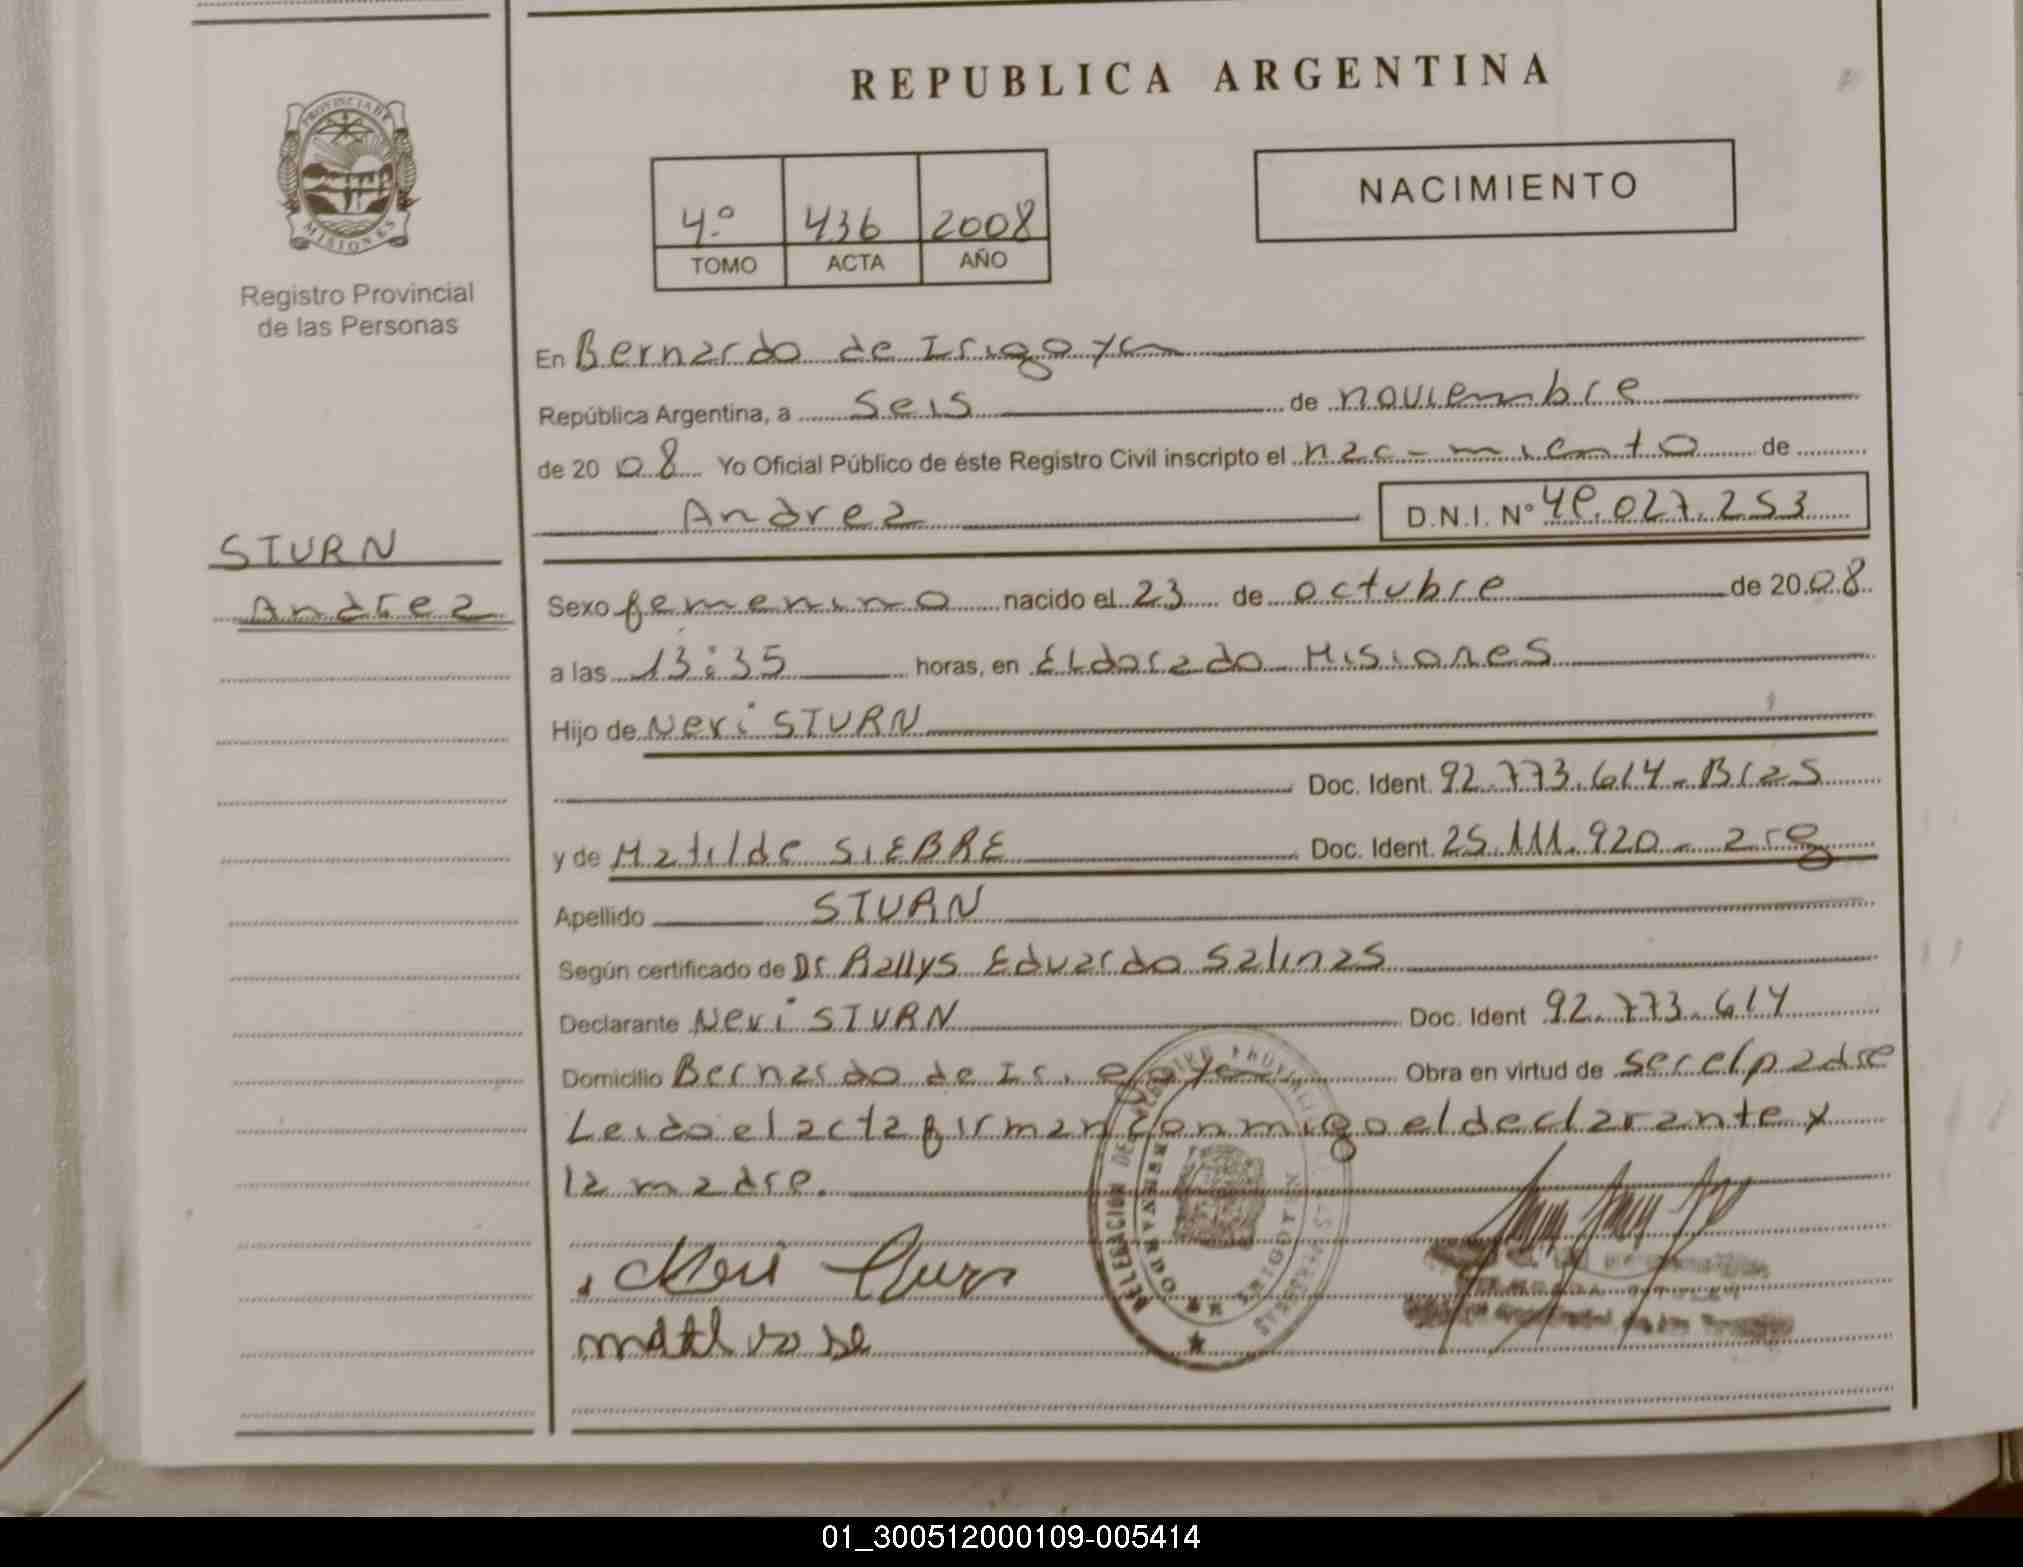 REPUBLICA ARGENTINA
PROVINCIA DE
MISIONES
Registro Provincial
de las Personas
NACIMIENTO
4º 436 2008
TOMO ACTA AÑO
En Bernardo de Irigoyen
República Argentina, a seis de noviembre
de 2008 Yo Oficial Público de éste Registro Civil inscripto el nacimiento de
Andrea D.N.I. Nº 49.027.253
STURN
Andrea
Sexo femenino nacido el 23 de octubre de 2008
a las 13:35 horas, en Eldorado Misiones
Hijo de Neri STURN
Doc. Ident. 92.773.614 - Bras
y de Matilde SIEBRE Doc. Ident. 25.111.920 - arg
Apellido STURN
Según certificado de Dr Rallys Eduardo Salinas
Declarante Neri STURN Doc. Ident 92.773.614
Domicilio Bernardo de Irigoyen Obra en virtud de ser el padre
Leido el acta firman conmigo el declarante y
la madre.
Neri
DELEGACION DE
BERNARDO DE IRIGOYEN
01_300512000109-005414